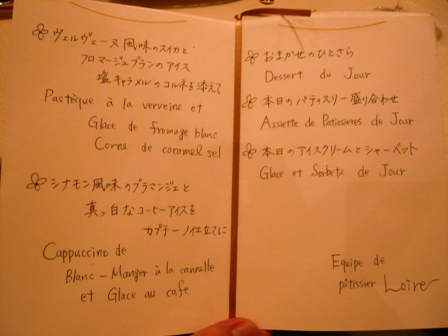 ヴェルヴェーヌ風味のスイカと
フロマージュブランのアイス
塩キャラメルのコルネを添えて
Pastèque à la verveine et
Glace de fromage blanc
Corne de caramel sel
シナモン風味のブラマンジェと
真っ白なコーヒーアイスを
カプチーノ仕立てに
Cappuccino de
Blanc-Manger à la cannelle
et Glace au cafe
おまかせのひとさら
Dessert du Jour
本日のパティスリー盛り合わせ
Assiette de Patisseries de Jour
本日のアイスクリームとシャーベット
Glace et Sorbets de Jour
Equipe de
pâtissier Loire